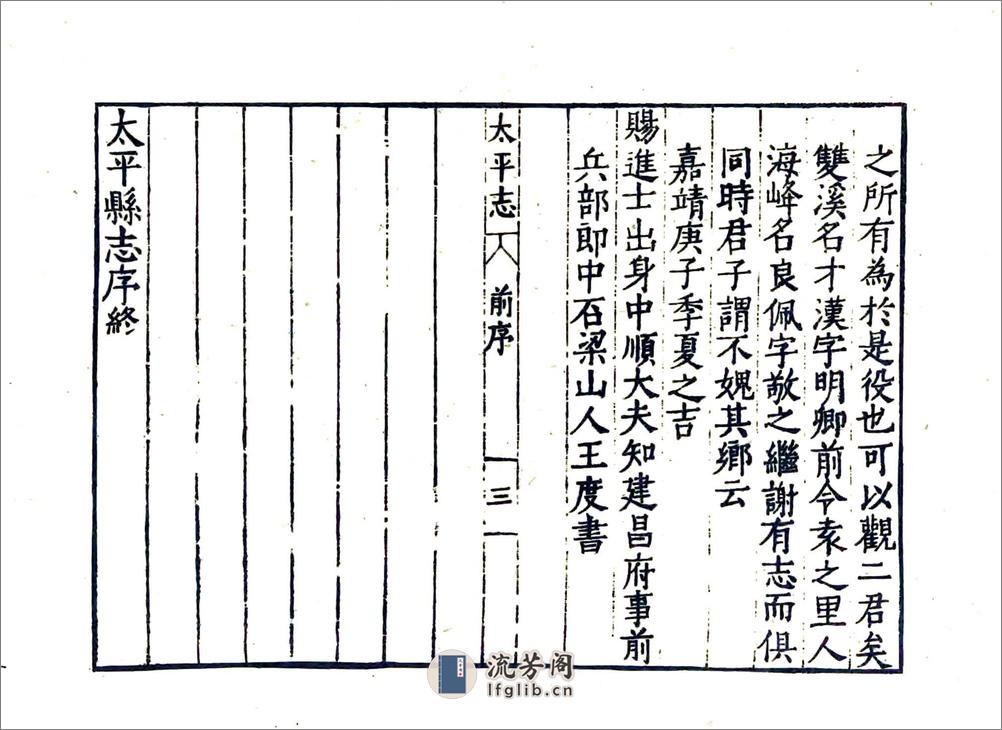 之所有為於是役也可以觀二君矣
雙溪名才漢字明卿前令袁之里人
海峰名良佩字敬之繼謝有志而俱
同時君子謂不媿其鄉云
嘉靖庚子季夏之吉
賜進士出身中順大夫知建昌府事前
兵部郎中石梁山人王度書
太平志 前序 三
太平縣志序終
流芳阁
lfglib.cn